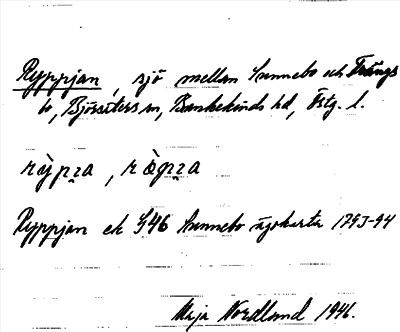 Ryppjan, sjö mellan Sunnebo och Trångs
bo, Björsäters sn, Bankekinds hd, Östg. l.
Ryppjan ek S46 Sunnebo ägokarta 1793-94
Maja Nordlund 1946.